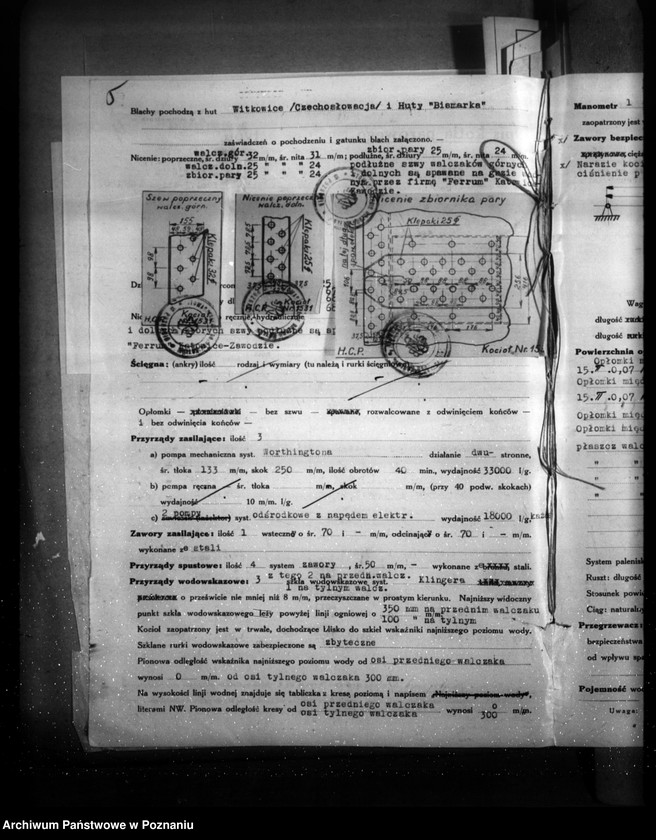 5
Blachy pochodzą z hut Witkowice /Czechosłowacja/ i Huty "Bismarka"
zaświadczeń o pochodzeniu i gatunku blach załączono. —
walcz.gór. zbior.pary 25 24
Nicenie: poprzeczne, śr. dziury 32 m/m, śr. nita 31 m/m; podłużne, śr. dziury m/m, śr. nita m/m.
walcz.doln. 25 " " " 24 podłużne szwy walczaków górnych
zbior.pary 25 " " " 24 i dolnych są spawane na gazie
przez firmę "Ferrum"
Zawodzie.
Szew poprzeczny
walcz. górn.
155
Kłępaki 32 ϕ
Nicenie poprzeczne
walcz. doln.
Kłępaki 25 ϕ
Nicenie zbiornika pary
Kłępaki 25 ϕ
H.C.P. Kocioł Nr.
i dolnych których szwy podłużne są
"Ferrum" Katowice-Zawodzie.
Ścięgna: (ankry) ilość rodzaj i wymiary (tu należą i rurki ściągowe)
Opłomki — — bez szwu — spawane, rozwalcowane z odwinięciem końców —
i bez odwinięcia końców —
Przyrządy zasilające: ilość 3
a) pompa mechaniczna syst. Worthingtona działanie dwu- stronne,
śr. tłoka 133 m/m, skok 250 m/m, ilość obrotów 40 min., wydajność 33000 l/g.
b) pompa ręczna śr. tłoka m/m, skok m/m, (przy 40 podw. skokach)
wydajność 10 m/m. l/g.
c) 2 pompy syst. odśrodkowe z napędem elektr. wydajność 18000 l/g,
Zawory zasilające: ilość 1 wsteczny o śr. 70 i - m/m, odcinający o śr. 70 i - m/m,
wykonane ze stali
Przyrządy spustowe: ilość 4 system zawory , śr. 50 m/m, - wykonane z stali.
z tego 2 na przedn.walcz.
Przyrządy wodowskazowe: 3 szkła wodowskazowe syst. Klingera
1 na tylnym walcz.
o prześwicie nie mniej niż 8 m/m, przeczyszczane w prostym kierunku. Najniższy widoczny
punkt szkła wodowskazowego leży powyżej linji ogniowej o 350 mm na przednim walczaku
100 " na tylnym m/m.
Kocioł zaopatrzony jest w trwałe, dochodzące blisko do szkieł wskaźniki najniższego poziomu wody.
Szklane rurki wodowskazowe zabezpieczone są zbyteczne
Pionowa odległość wskaźnika najniższego poziomu wody od osi przedniego walczaka
wynosi 0 m/m. od osi tylnego walczaka 300 mm.
Na wysokości linji wodnej znajduje się tabliczka z kresą poziomą i napisem „Najniższy poziom wody",
literami NW. Pionowa odległość kresy od osi przedniego walczaka wynosi 0 m/m.
osi tylnego walczaka 300
Manometr 1
zaopatrzony jest
x/ Zawory bezpiecz
x/ Narazie
ciśnienie p
Wag
długość
długość
Powierzchnia o
Opłomki
15. 0,07
Opłomki
15. 0,07
Opłomki
Opłomki
płaszcz walc
" "
" "
" "
System palenisk
Ruszt: długość
Stosunek powi
Ciąg: natural
Przegrzewacz:
bezpieczeństwa
od wpływu
Pojemność wod
Uwaga:
Archiwum Państwowe w Poznaniu